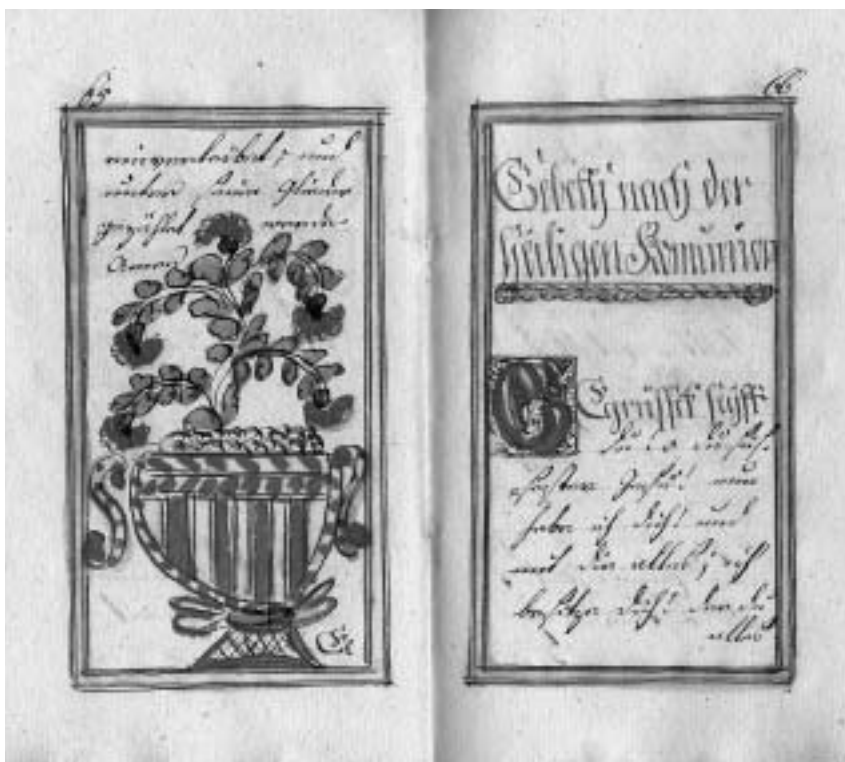 65
einverleibet, und
unter seine Glieder
gezählet werde
Amen
66
Gebeth nach der
Heiligen Kommunion
Egrüsset seyst
Du o
Jesu! nun
habe ich dich! und
mit dir alles; ich
besitze dich! der du
alles